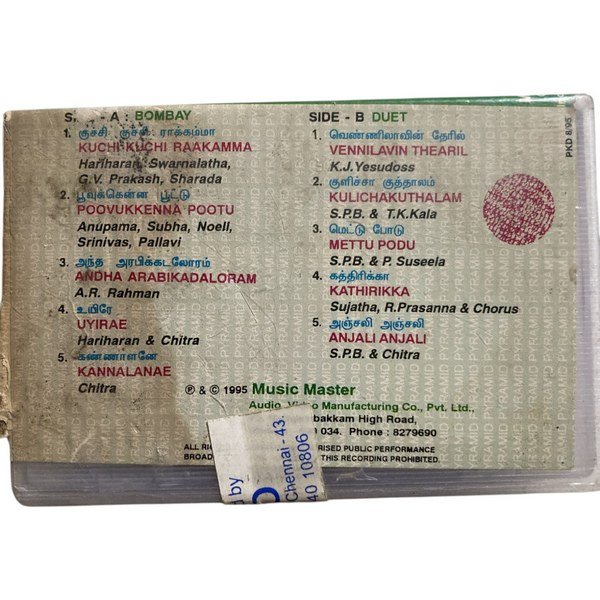 S - A : BOMBAY
1. குச்சி குச்சி ராக்கம்மா
KUCHI KUCHI RAAKAMMA
Hariharan, Swarnalatha,
G.V. Prakash, Sharada
2. பூவுக்கென்ன பூட்டு
POOVUKKENNA POOTU
Anupama, Subha, Noell,
Srinivas, Pallavi
3. அந்த அரபிக்கடலோரம்
ANDHA ARABIKADALORAM
A.R. Rahman
4. உயிரே
UYIRAE
Hariharan & Chitra
5. கண்ணாளனே
KANNALANAE
Chitra
SIDE - B DUET
1. வெண்ணிலாவின் தேரில்
VENNILAVIN THEARIL
K.J.Yesudoss
2. குளிச்சா குத்தாலம்
KULICHAKUTHALAM
S.P.B. & T.K.Kala
3. மெட்டு போடு
METTU PODU
S.P.B. & P. Suseela
4. கத்திரிக்கா
KATHIRIKKA
Sujatha, R.Prasanna & Chorus
5. அஞ்சலி அஞ்சலி
ANJALI ANJALI
S.P.B. & Chitra
PKD 8/95
℗ & © 1995 Music Master
Audio, Video Manufacturing Co., Pvt. Ltd.,
bakkam High Road,
034. Phone : 8279690
ALL RI RISED PUBLIC PERFORMANCE
BROAD THIS RECORDING PROHIBITED.
d by
Chennai - 43.
40 10806